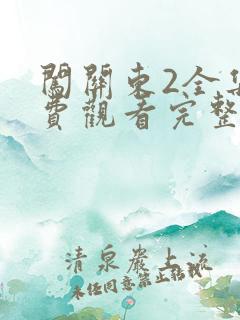 闖關東2全集
費觀看完整
清泉巖上流
未经同意禁止转载